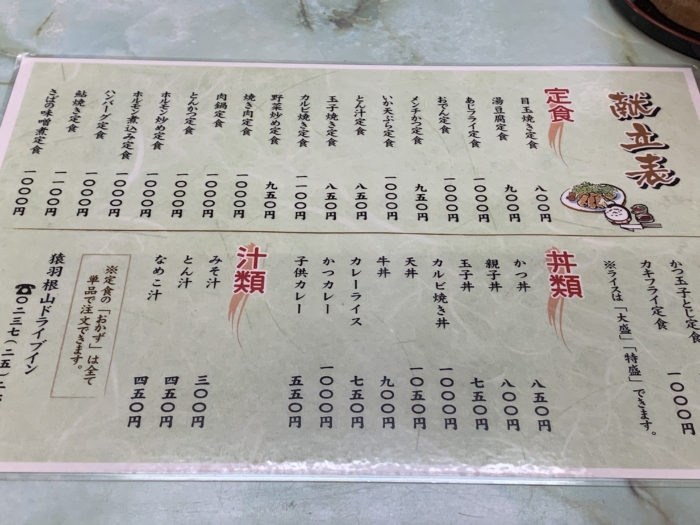 献立表
定食
目玉焼き定食 八〇〇円
湯豆腐定食 九〇〇円
あじフライ定食 一〇〇〇円
おでん定食 一〇〇〇円
メンチかつ定食 九五〇円
いか天ぷら定食 一〇〇〇円
とん汁定食 八五〇円
玉子焼き定食 八五〇円
カルビ焼き定食 一一〇〇円
野菜炒め定食 九五〇円
焼き肉定食 一〇〇〇円
肉鍋定食 一〇〇〇円
とんかつ定食 一〇〇〇円
ホルモン炒め定食 一〇〇〇円
ホルモン煮込み定食 一〇〇〇円
ハンバーグ定食 一〇〇〇円
鮎焼き定食 一一〇〇円
さばの味噌煮定食 一〇〇〇円
かつ玉子とじ定食
カキフライ定食 一〇〇〇円
※ライスは「大盛」「特盛」できます。
丼類
かつ丼 八五〇円
親子丼 八〇〇円
玉子丼 七五〇円
カルビ焼き丼 一〇〇〇円
天丼 一〇五〇円
牛丼 九〇〇円
カレーライス 七五〇円
かつカレー 一〇〇〇円
子供カレー 五五〇円
汁類
みそ汁 三〇〇円
とん汁 四五〇円
なめこ汁 四五〇円
※定食の「おかず」は全て
単品で注文できます。
猿羽根山ドライブイン
☎〇二三七(二五)二